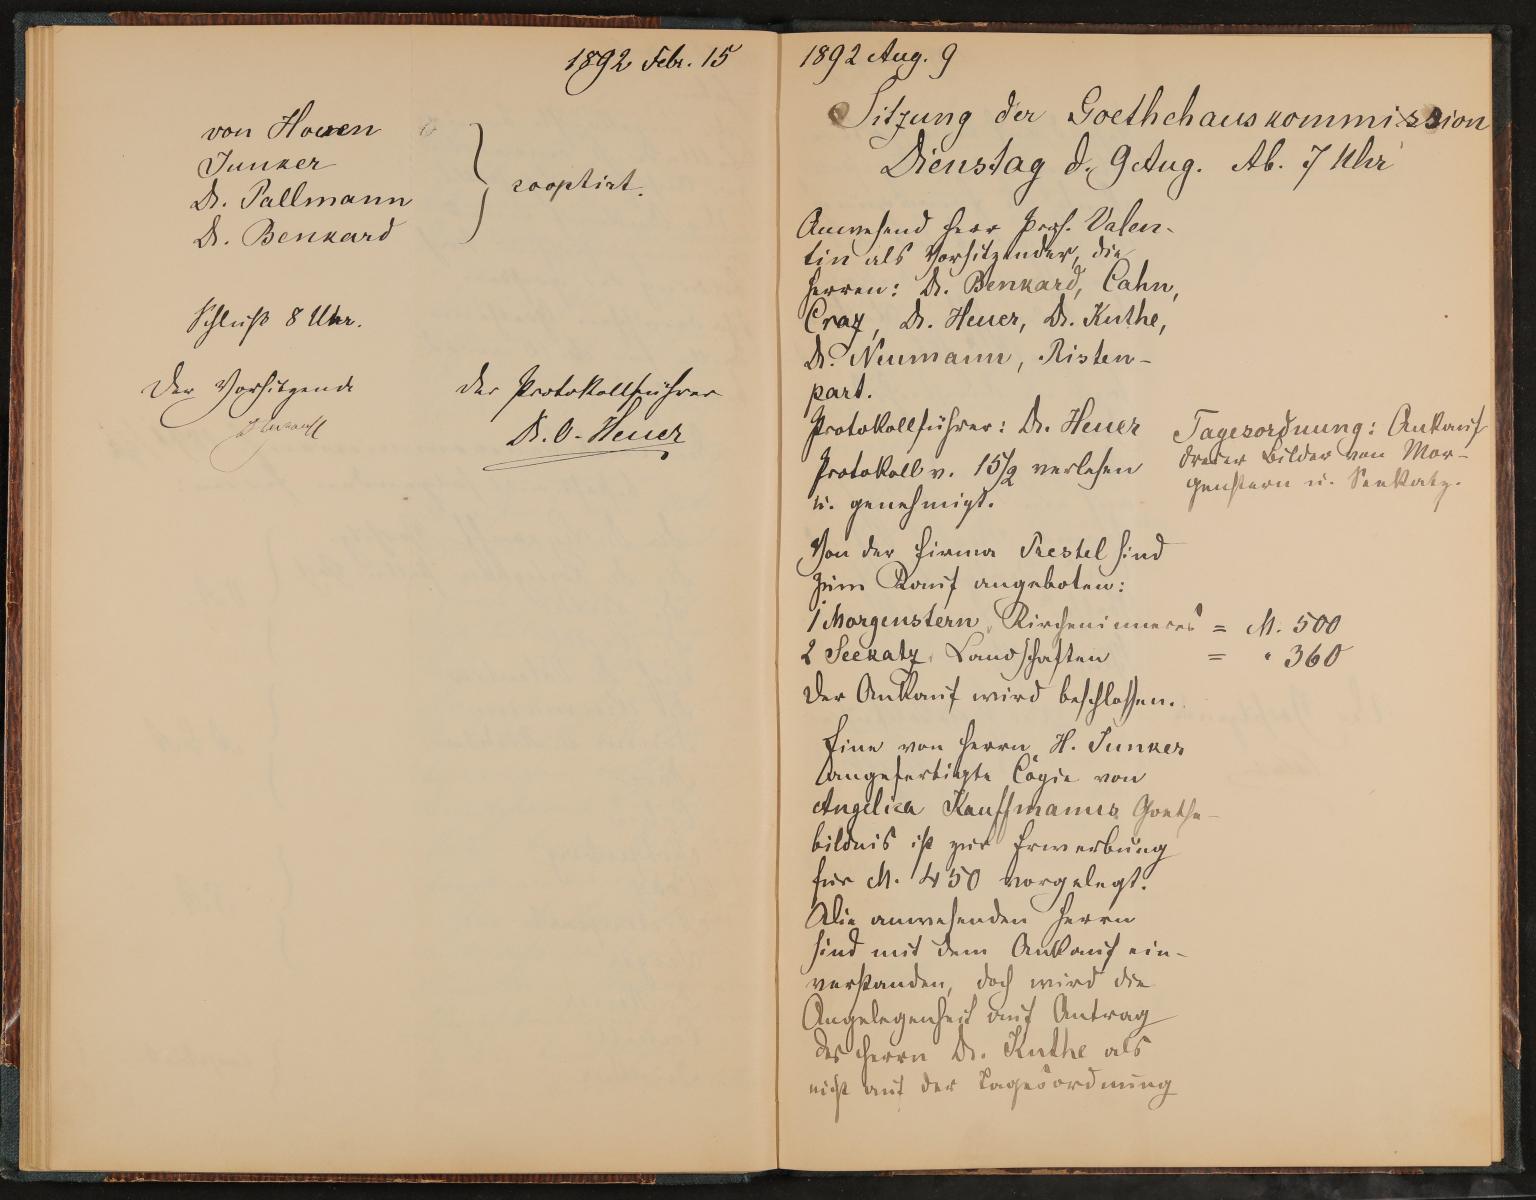 1892 Febr. 15
von Hoven
Junker
Dr. Pallmann
Dr. Benkard
cooptirt.
Schluß 8 Uhr.
Der Vorsitzende
der Protokollführer
Dr. O. Heuer
1892 Aug. 9
Sitzung der Goethehauskommission
Dienstag d. 9 Aug. Ab. 7 Uhr
Anwesend Herr Prof. Valen-
tin als Vorsitzender, die
Herren: Dr. Benkard, Cahn,
Craz, Dr. Heuer, Dr. Knthe,
Dr. Neumann, Risten-
part.
Protokollführer: Dr. Heuer
Protokoll v. 15/2 verlesen
u. genehmigt.
Tagesordnung: Ankauf
dreier Bilder von Mor-
genstern u. Seekatz.
Von der Firma Trestel sind
zum Kauf angeboten:
1 Morgenstern, Kircheninneres = M. 500
2 Seekatz, Landschaften = " 360
Der Ankauf wird beschlossen.
Eine von Herrn H. Junker
angefertigte Copie von
Angelica Kauffmanns Goethe-
bildnis ist zur Erwerbung
für M. 450 vorgelegt.
Die anwesenden Herrn
sind mit dem Ankauf ein-
verstanden, doch wird die
Angelegenheit auf Antrag
des Herrn Dr. Knthe als
nicht auf der Tagesordnung